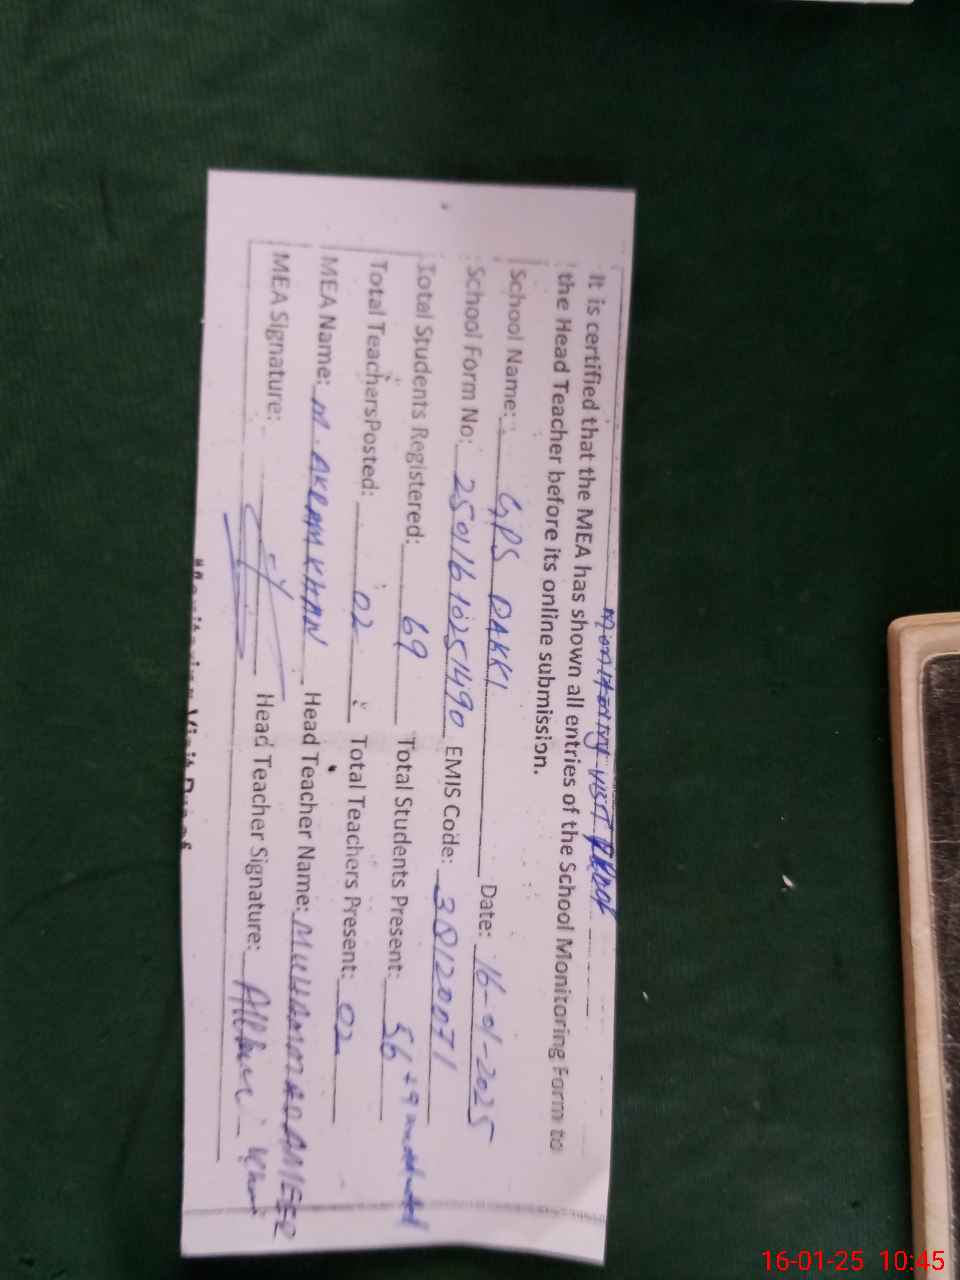 Monitoring visit Proof
It is certified that the MEA has shown all entries of the School Monitoring Form to
the Head Teacher before its online submission.
School Name: GPS DAKKI Date: 16-01-2025
School Form No: 25011610251490 EMIS Code: 38120071
Total Students Registered: 69 Total Students Present: 56 + 9
Total TeachersPosted: 02 Total Teachers Present: 02
MEA Name: M. AKRAM KHAN Head Teacher Name: MUHAMMAD AMEER
MEA Signature: Head Teacher Signature:
Monitoring Visit Proof
16-01-25 10:45